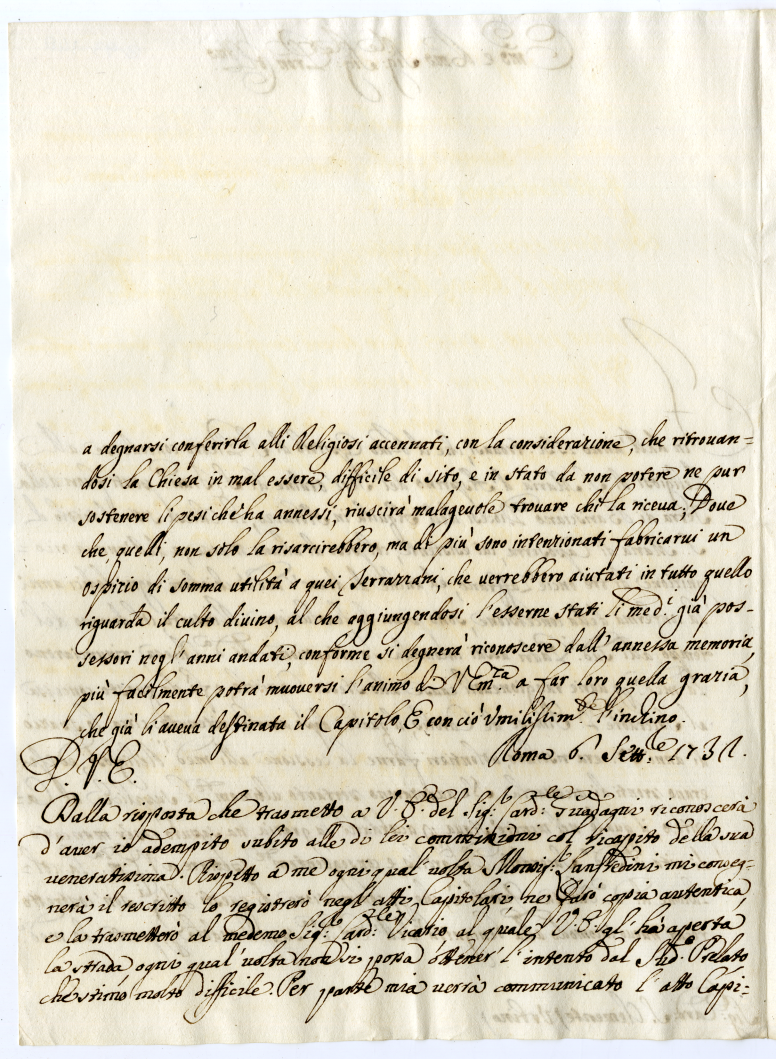 a degnarsi conferirla alli Religiosi accennati, con la considerazione, che ritrouan=
dosi la Chiesa in mal essere, difficile di sito, e in stato da non potere ne pur
sostenere li pesi ché ha annessi, riuscirà malageuole trouare chi la riceua; Doue
che, quelli, non solo la risarcirebbero, ma di più sono intenzionati fabricarui un
Ospizio di somma utilità a quei Terrazzani, che uerrebbero aiutati in tutto quello
riguarda il culto diuino, al che aggiungendosi l'esserne stati li med:i già pos-
sessori negl'anni andati, conforme si degnerà riconoscere dall'annessa memoria,
più facilmente potrà muouersi l'animo di V Em:za a far loro quella grazia,
che già li aueua destinata il Capitolo, E con ciò Vmilissim:te l'inchino.
D. V. E. Roma 6. Sett:e 173
Dalla risposta che trasmetto a V. E. del Sig:r Card:le Guadagni riconoscerà
d'auer io adempito subito alle di lei commissioni col ricapito della sua
veneratissima. Rispetto a me ogni qual uolta Monsig:r Sanfedini mi conseg-
nerà il rescritto lo registrerò negl'atti Capitolari, ne farò copia autentica,
e la trasmetterò al medemo Sig:r Card:le Vicario al quale V. E. gl'hà aperta
la strada ogni qual uolta non si possa ottener l'intento dal Sud:o Prelato
che stimo molto difficile. Per parte mia uerrà communicato l'atto Capi-